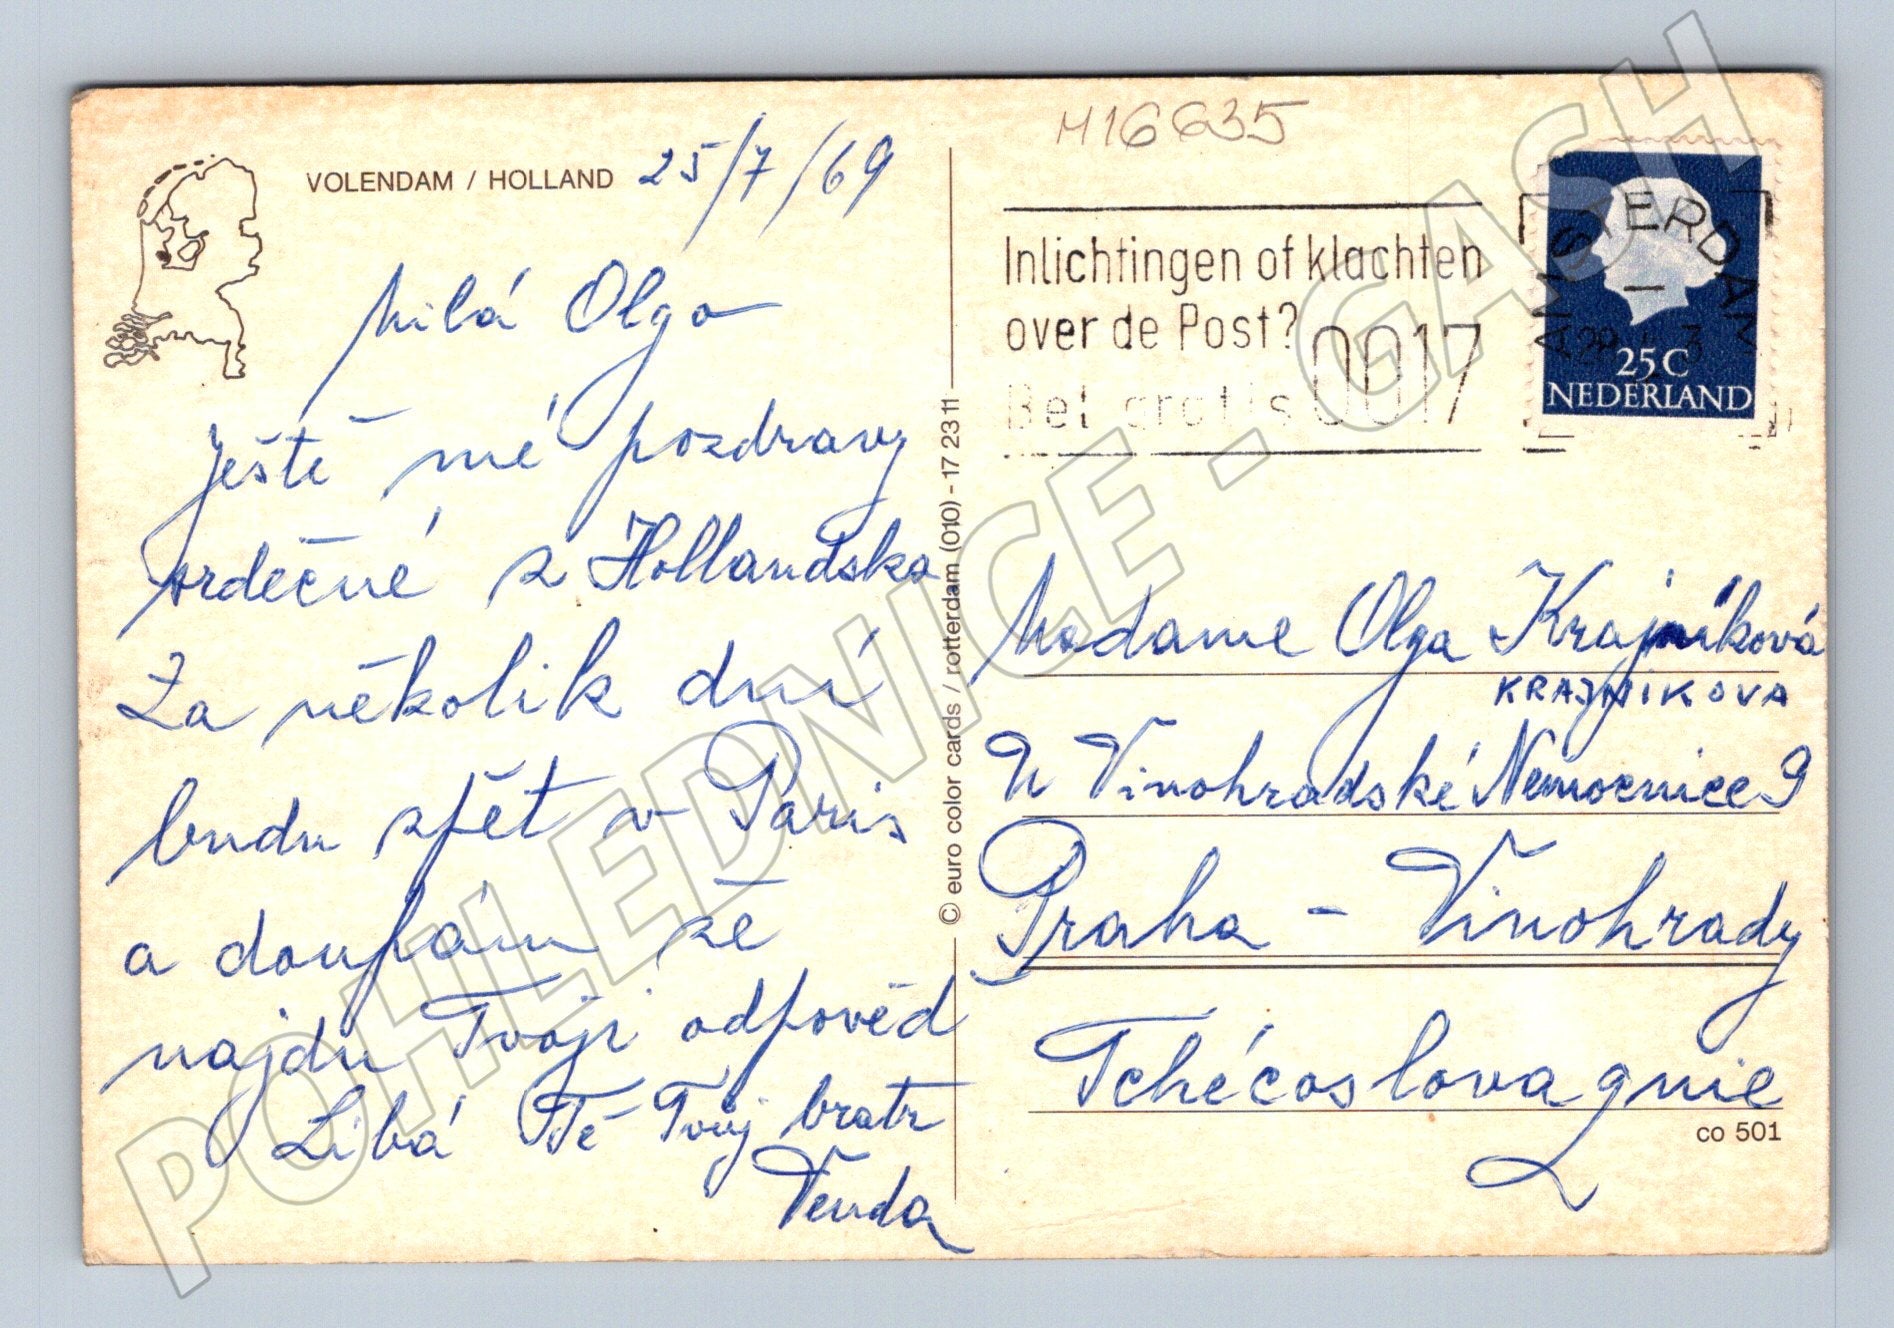 VOLENDAM / HOLLAND 25/7/69
Milá Olgo
Ještě mé pozdravy
srdečné z Hollandska
Za několik dní
budu zpět v Paris
a doufám že
najdu Tvoji odpověd
Líbá Tě Tvůj bratr
Venda
© euro color cards / rotterdam (010) - 17 23 11
H16635
Inlichtingen of klachten
over de Post? 0017
Bel gratis 0017
AMSTERDAM
25C
NEDERLAND
Madame Olga Krajníková
KRAJNIKOVA
U Vinohradské Nemocnice 9
Praha - Vinohrady
Tchécoslovagnie
co 501
POHLEDNICE - GASH